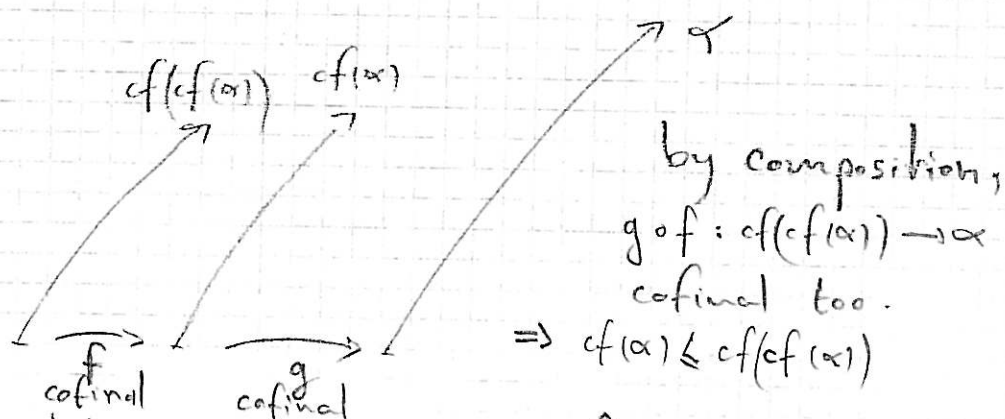 cf(cf(α)) cf(α) α
by composition,
g∘f : cf(cf(α)) → α
cofinal too.
⇒ cf(α) ≤ cf(cf(α))
f g
cofinal cofinal